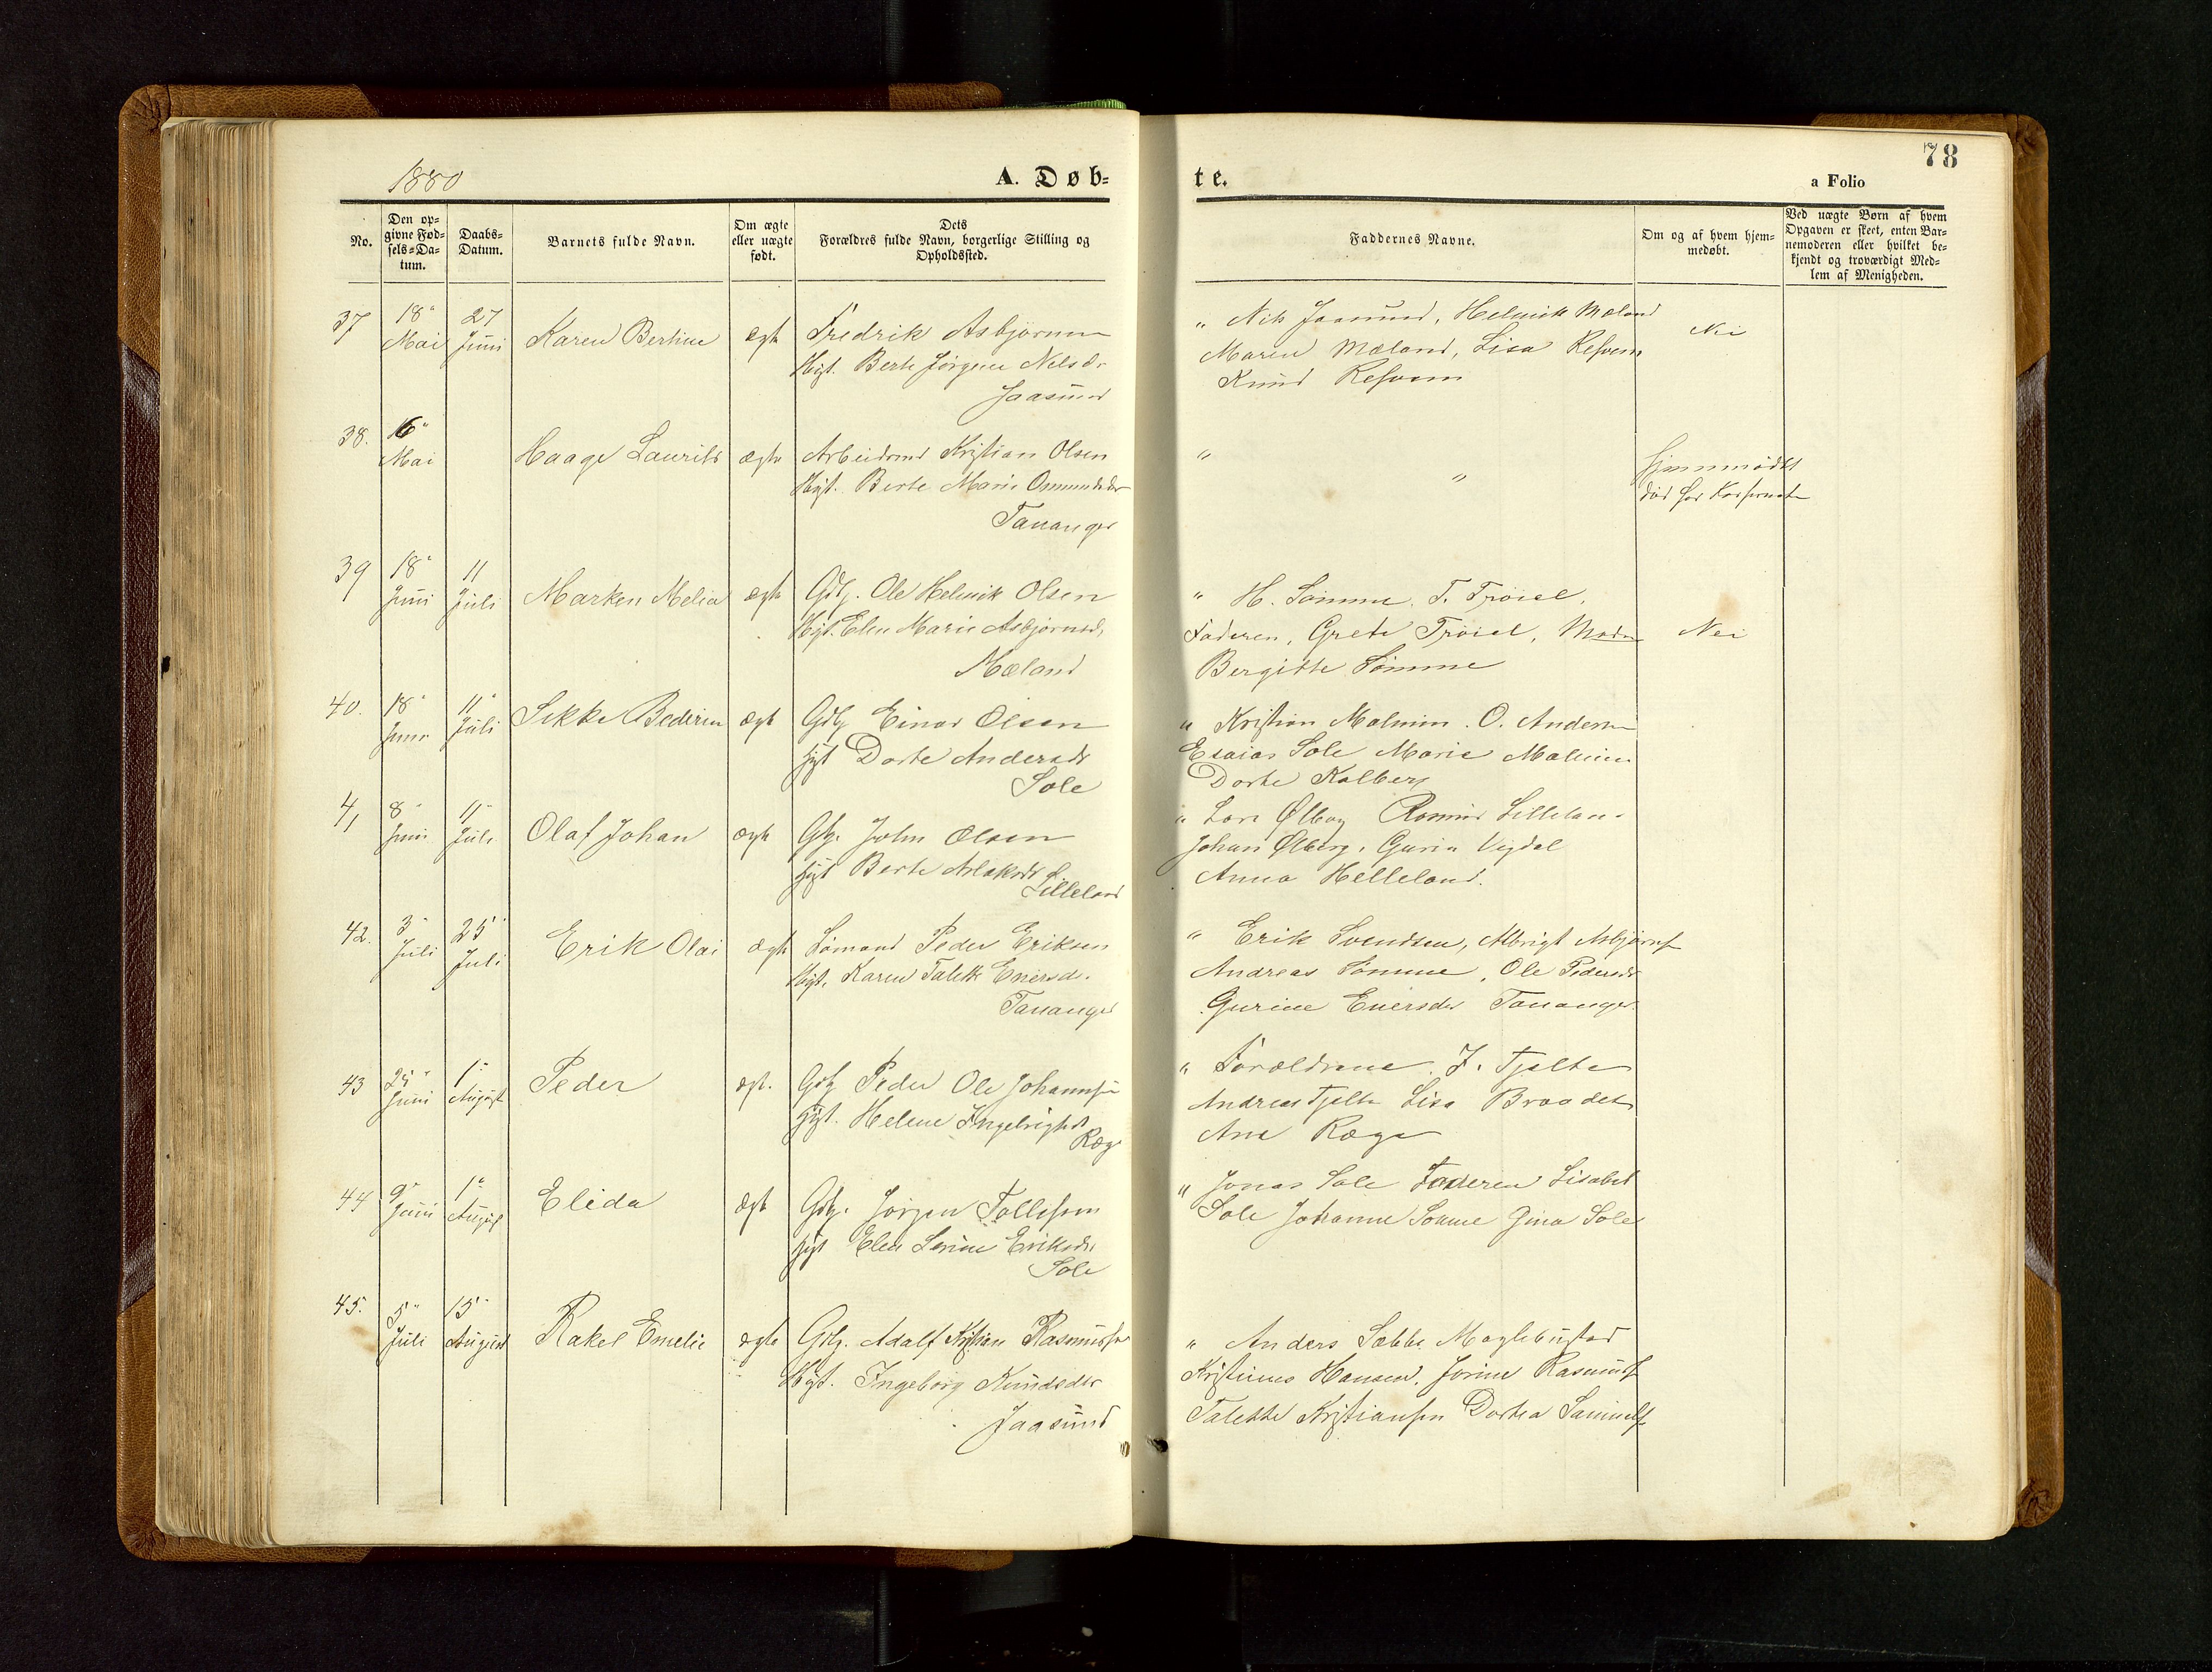 1880
A. Døb=
te.
78
a Folio
No.
Den op=
givne Fød=
sels=Da=
tum.
Daabs=
Datum.
Barnets fulde Navn.
Om ægte
eller uægte
født.
Dets
Forældres fulde Navn, borgerlige Stilling og
Opholdssted.
Faddernes Navne.
Om og af hvem hjem=
medøbt.
Ved uægte Børn af hvem
Opgaven er skeet, enten Bar=
nemoderen eller hvilket be=
kjendt og troværdigt Med=
lem af Menigheden.
37
18"
Mai
27
Juni
Karen Bertine
ægt
Fredrik Asbjørnsen
Hgt. Berte Jørgine Nilsdr
Jaasund
" Nils Jaasund, Helmik Mæland
Maren Mæland, Lisa
Knud
Nei
38.
16"
Mai
Haage Laurits
ægte
Arbeidsmd Kristian Olsen
Hgt. Berte Marie Osmundsdr
Tananger
"
"
hjemmedøbt
død før
39
18"
Juni
11
Juli
Marken Melia
ægt
Gdbr. Ole Helmik Olsen
Hgt. Elen Marie Asbjørnsd.
Mæland
" H. Sømme. T. Trøiel.
Faderen, Grete Trøiel, Moder
Bergitte Sømme
Nei
40.
18"
Juni
11"
Juli
Sikke
ægt
Gdbr Einar Olsen
Hgt Dorte Andersdr
Sole
" Kristian Malmin. O. Andersen
Esaias Sole Marie Malmin
Dorte Kolberg
41
8"
Juni
11"
Juli
Olaf Johan
ægt
Gbr. John Olsen
Hgt Berte Aslaksdr
Lilleland
" Lars Ølberg Rasmus Lilleland
Johan Ølberg, Gurin Vigdel
Anna Helleland.
42.
3"
Juli
25"
Juli
Erik Olai
ægt
Sømand Peder Eriksen
Hgt. Karen Talette Enersd.
Tananger
" Erik Svendsen, Albrigt Asbjørns
Andreas Sømme, Ole Pedersdr
Gurine Enersdr Tananger
43
25"
Juni
1"
August
Peder
ægt.
Gdbr Peder Ole Johannsen
Hgt. Helene Ingebrigtsd
Ræge
" Forældrene. J. Tjelta
Andreas Tjelta Lisa
Ane Ræge
44
9"
Juni
1"
August
Elida
ægt
Gdbr. Jørgen Tollefsen
Hgt Elen Serine Eriksdr
Sole
" Jonas Sole Faderen Lisabet
Sole Johanne Sømme Gina Sole
45.
5"
Juli
15"
August
Rakel Emelie
ægte
Gdbr. Adolf Kristian Rasmussen
Hgt. Ingeborg Knudsdr
Jaasund
" Anders Sæbbe Myklebustad
Kristines Hansen, Jorine Rasmusd
Talette Kristiansen Dortea Samuels